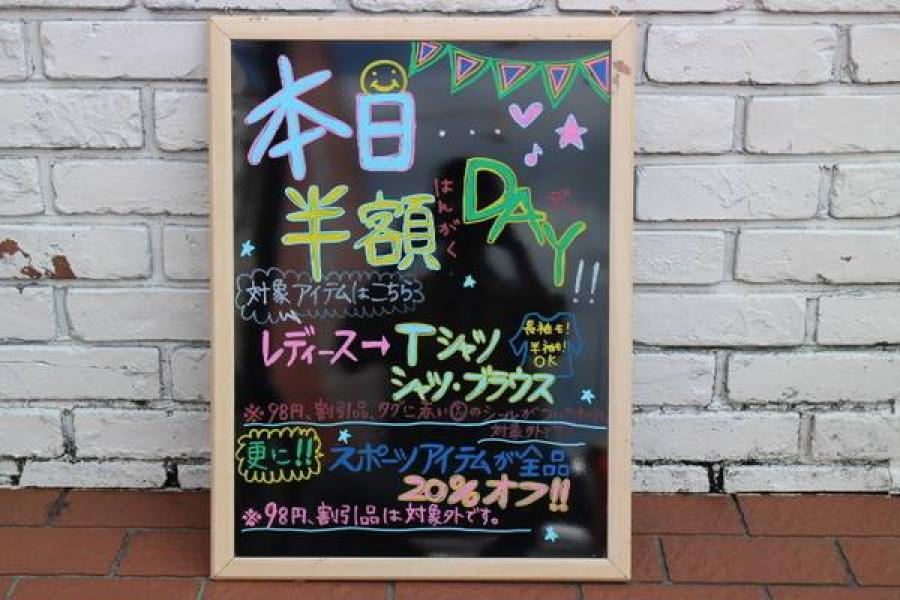 本日...
半額 DAY!!
はんがく
デー
対象アイテムはこちら
レディース→Tシャツ
シャツ・ブラウス
長袖も!
半袖も!
OK
※98円、割引品、タグに赤い
のシールがついた
対象外で
更に!! スポーツアイテムが全品
20%オフ!!
※98円、割引品は対象外です。